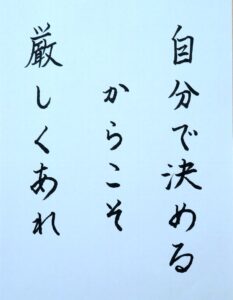 自分で決める
からこそ
厳しくあれ